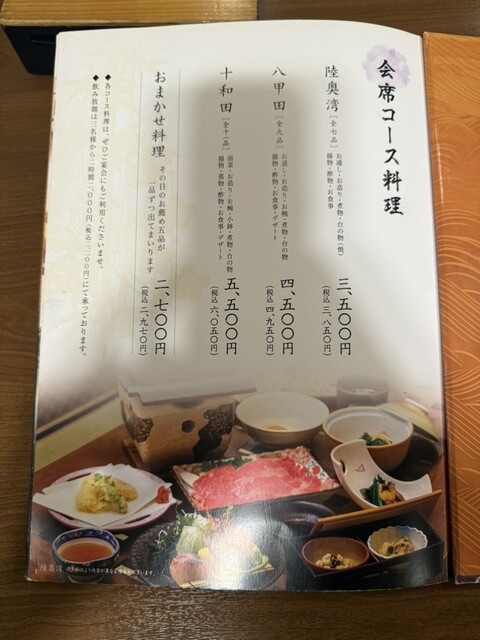 会席コース料理
陸奥湾［全七品］
お通し・お造り・煮物・台の物（焼）
揚物・酢物・お食事
三、五〇〇円
（税込 三、八五〇円）
八甲田［全九品］
お通し・お造り・お椀・煮物・台の物
揚物・酢物・お食事・デザート
四、五〇〇円
（税込 四、九五〇円）
十和田［全十一品］
前菜・お造り・お椀・小鉢・煮物・台の物
揚物・蒸物・酢物・お食事・デザート
五、五〇〇円
（税込 六、〇五〇円）
おまかせ料理
その日のお薦め五品が
一品ずつ出てまいります
二、七〇〇円
（税込 二、九七〇円）
◆各コース料理は、ぜひご宴会にもご利用くださいませ。
◆飲み放題は三名様から二時間二、〇〇〇円（税込二、二〇〇円）にて承っております。
陸奥湾